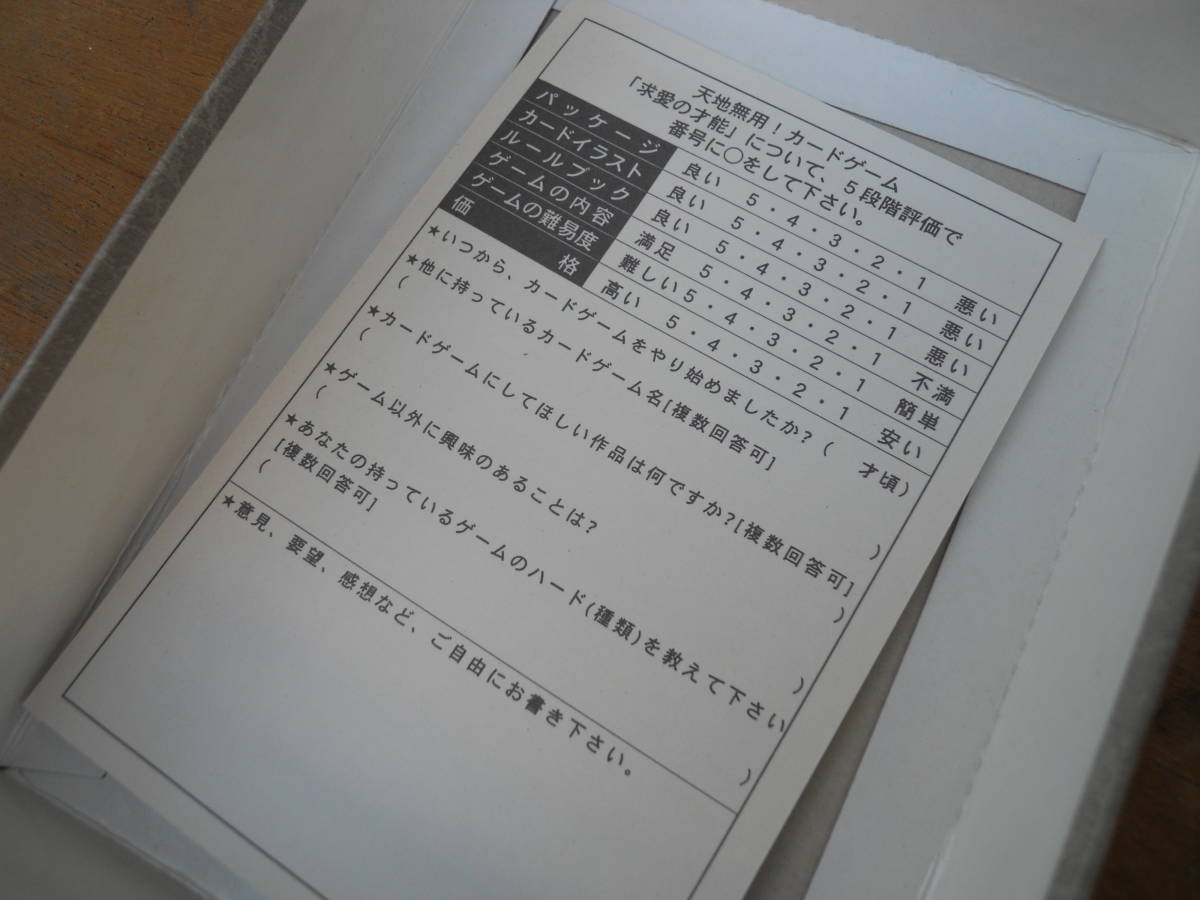 天地無用！カードゲーム
「求愛の才能」について、５段階評価で
番号に○をして下さい。
パッケージ 良い ５・４・３・２・１ 悪い
カードイラスト 良い ５・４・３・２・１ 悪い
ルールブック 良い ５・４・３・２・１ 悪い
ゲームの内容 満足 ５・４・３・２・１ 不満
ゲームの難易度 難しい ５・４・３・２・１ 簡単
価格 高い ５・４・３・２・１ 安い
★いつから、カードゲームをやり始めましたか？（ 才頃）
★他に持っているカードゲーム名[複数回答可]
（ ）
★カードゲームにしてほしい作品は何ですか？[複数回答可]
（ ）
★ゲーム以外に興味のあることは？
（ ）
★あなたの持っているゲームのハード(種類)を教えて下さい
[複数回答可]
（ ）
★意見、要望、感想など、ご自由にお書き下さい。